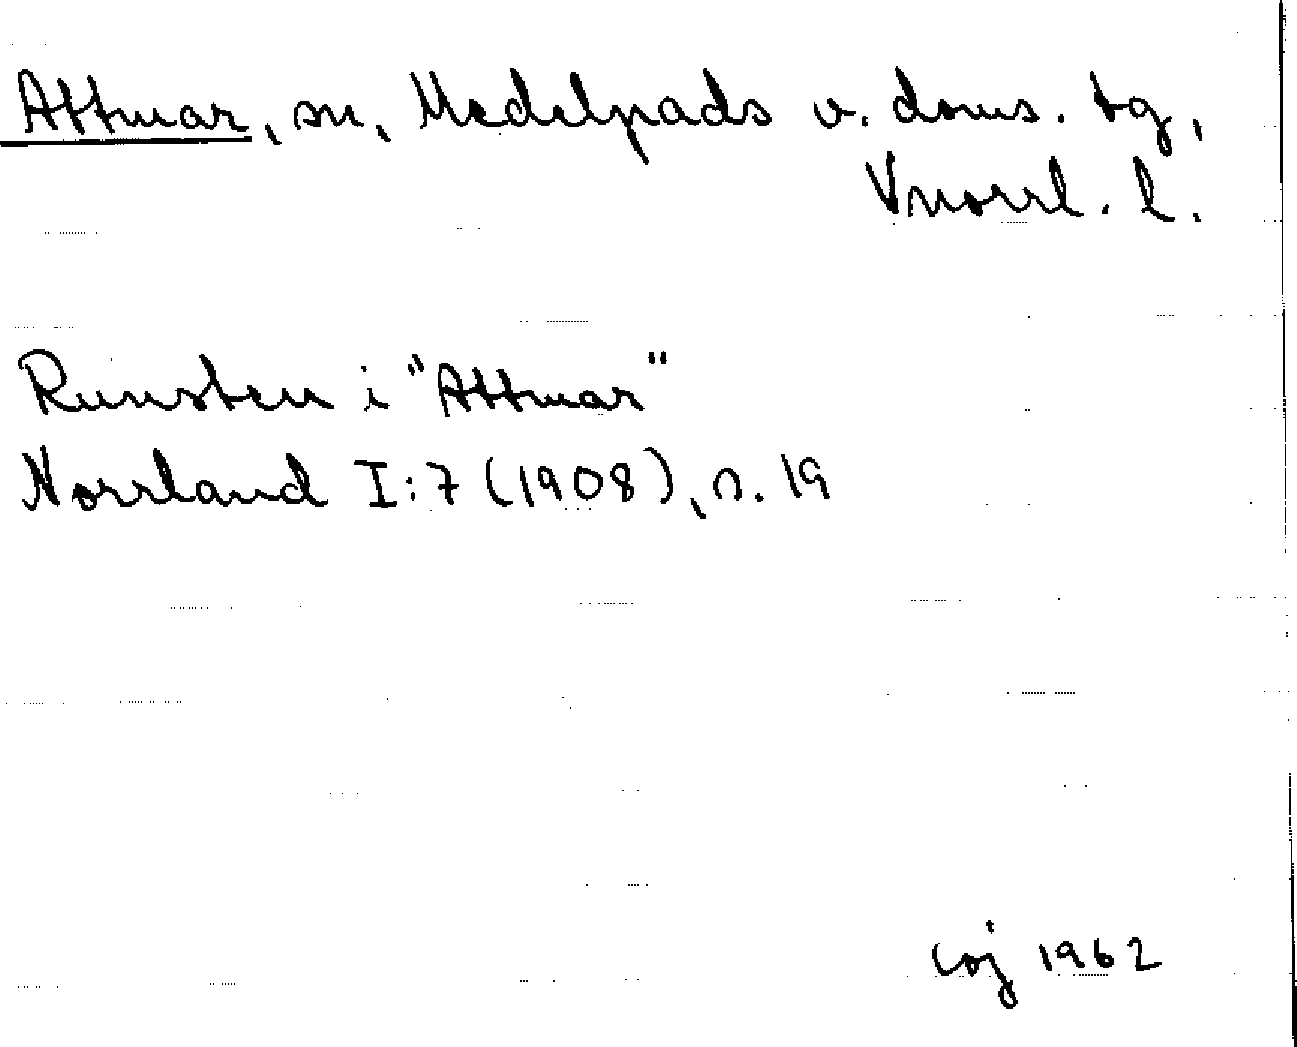 Attmar, sn, Medelpads v. doms. tg,
Vnorrl. l.
Runsten i "Attmar"
Norrland I:7 (1908), s. 19
Coj 1962